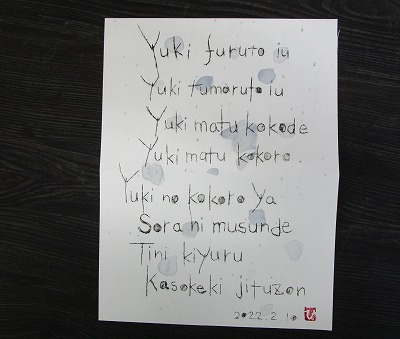 Yuki furuto iu
Yuki tumoruto iu
Yuki matu kokode
Yuki matu kokoro.
Yuki no kokoro ya
Sora ni musunde
Tini kiyuru
Kasokeki jituzon
2022.2.10 ひ